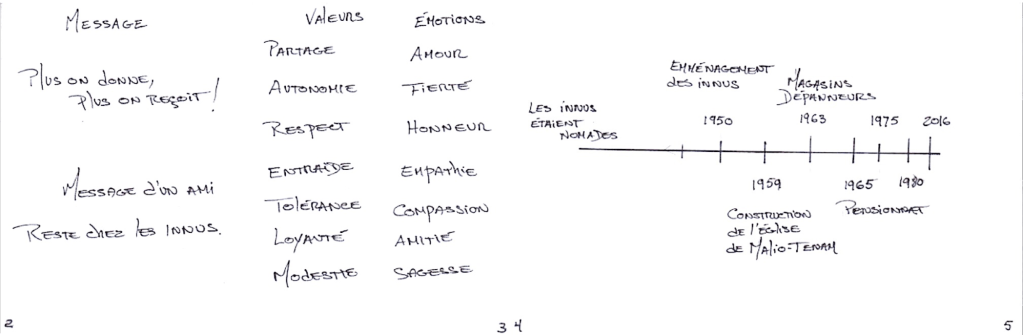 Message
Plus on donne,
plus on reçoit!
Message d'un ami
Reste chez les Innus.
Valeurs
Partage
Autonomie
Respect
Entraîde
Tolérance
Loyauté
Modestie
Émotions
Amour
Fierté
Honneur
Empathie
Compassion
Amitié
Sagesse
Les Innus
étaient
nomades
Emménagement
des Innus
Magasins
Dépanneurs
1950
1963
1975
2016
1959
1965
1980
Construction
de l'église
de Malio-Tenam
Pensionnat
2
3 4
5